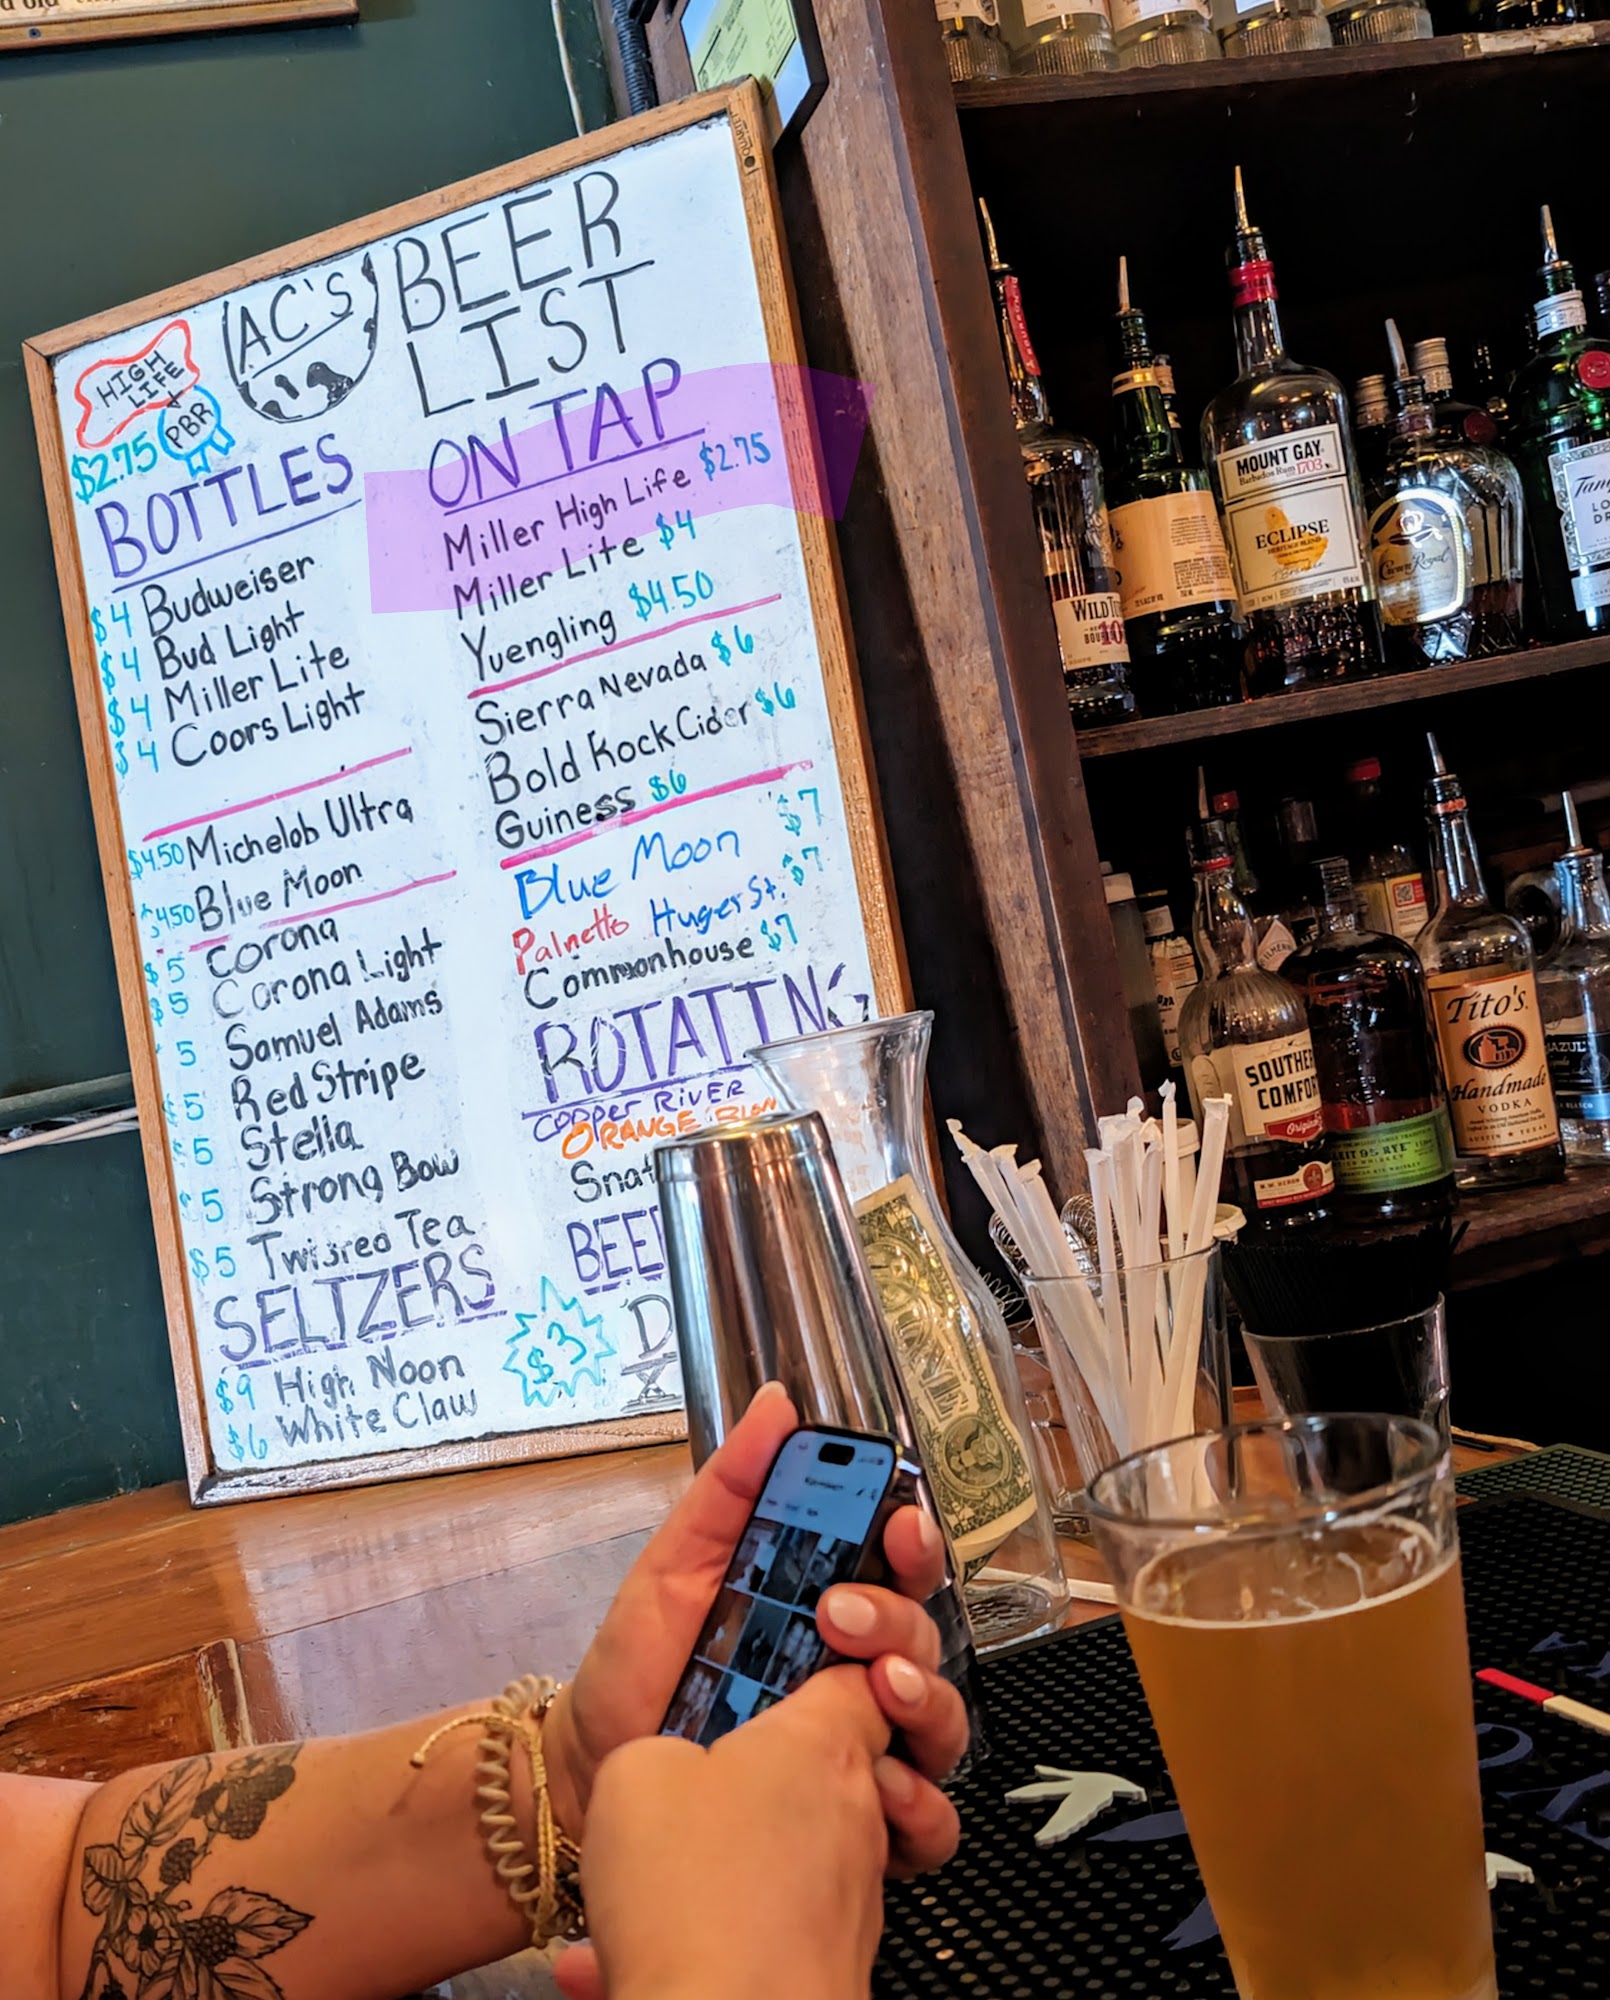 AC'S
BEER
LIST
HIGH
LIFE
+
PBR
$2.75
BOTTLES
$4 Budweiser
$4 Bud Light
$4 Miller Lite
$4 Coors Light
$4.50 Michelob Ultra
$4.50 Blue Moon
$5 Corona
$5 Corona Light
5 Samuel Adams
5 Red Stripe
5 Stella
5 Strong Bow
$5 Twisred Tea
SELTZERS
$9 High Noon
$6 White Claw
ON TAP
Miller High Life $2.75
Miller Lite $4
Yuengling $4.50
Sierra Nevada $6
Bold Rock Cider $6
Guiness $6
Blue Moon $7
Palnetto Huger St. $7
Commonhouse $7
ROTATING
COPPER RIVER
ORANGE
Snat
BEE
$3
D
QUARTET
MOUNT GAY
Barbados Rum 1703
ECLIPSE
HERITAGE BLEND
Crown Royal
WILD TU
Tang
LO
DR
SOUTHE
COMFO
Origin
EIT 95 RYE
Tito's
Handmade
VODKA
AUSTIN TEXAS
AZUL
ONE